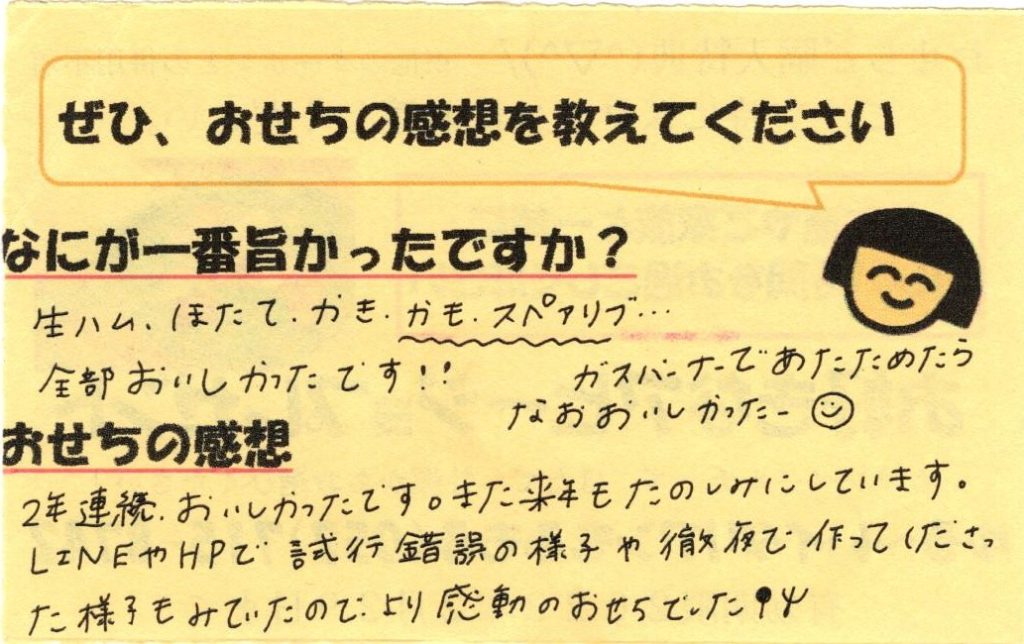 ぜひ、おせちの感想を教えてください
なにが一番旨かったですか？
生ハム、ほたて、かき、かも、スペアリブ…
全部おいしかったです!!
ガスバーナーであたためたら
なおおいしかったー
おせちの感想
2年連続、おいしかったです。また来年もたのしみにしています。
LINEやHPで試行錯誤の様子や徹夜で作ってくださっ
た様子もみていたので、より感動のおせちでした